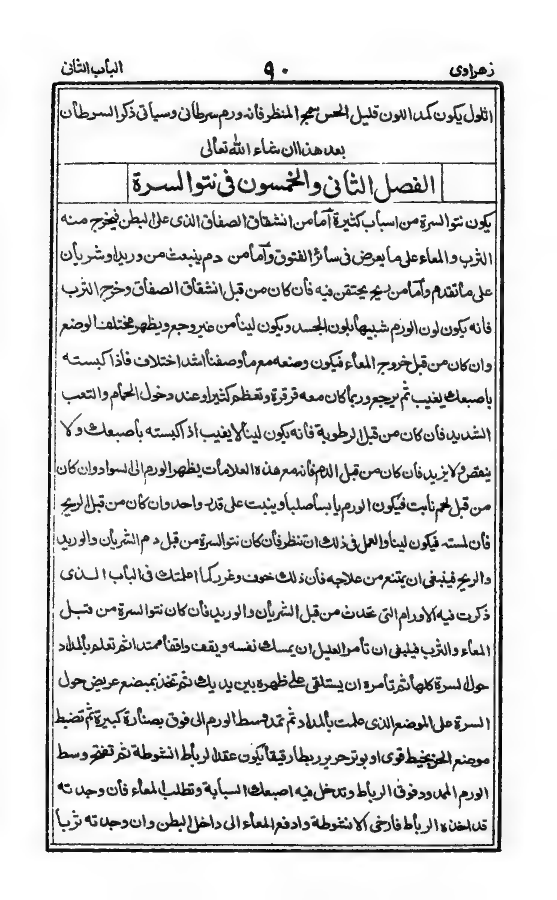 زهراوى ٩٠ الباب الثانى
الثلول يكون كمد اللون قليل الحس سمج المنظر فأنه ورم سرطانى وسيأتى ذكر السرطأن
بعد هذا ان شاء الله تعالى
الفصل الثانى والخمسون فى نتو السرة
يكون نتو السرة من اسباب كثيرة أمأ من انشقاق الصفاق الذى على البطن فيخرج منه
الثرب و المعاء على مأ يعرض فى سأئر الفتوق وأمأ من دم ينبعث من وريد او شريأن
على مأ تقدم وأمأ من ريح يحتقن فيه فأن كان من قبل انشقأق الصفأق وخرج الثرب
فأنه يكون لون الورم شبيهأ بلون الجسد ويكون لينأ من غير وجع ويظهر مختلف الوضع
وان كان من قبل خروج المعأء فيكون وضعه مع مأ وصفنأ اشد اختلاف فأذا كبسته
بأصبعك يغيب ثم يرجع وربمأ كان معه قرقرة وتعظم كثيرا وعند دخول الحمأم والتعب
الشديد فأن كان من قبل الرطوبة فأنه يكون لينأ لا يغيب اذا كبسته بأصبعك ولا
ينقص ولا يزيد فأن كان من قبل الدم فأنه مع هذه العلامأت يظهر الورم الى السواد وان كان
من قبل لحم نأبت فيكون الورم يأبسأ صلبأ ويثبت على قدر واحد وان كان من قبل الريح
فأن لمسته فيكون لينأ والعمل فى ذلك ان تنظر فأن كان نتو السرة من قبل دم الشريأن والوريد
والريح فينبغى ان يمتنع من علاجه فأن ذلك خوف وغرر كمأ اعلمتك فى البأب الذى
ذكرت فيه الاورام التى تحدث من قبل الشريأن والوريد فأن كان نتو السرة من قبل
المعأء والثرب فينبغى ان تأمر العليل ان يمسك نفسه ويقف واقفأ ممتدا ثم تعلم بألمداد
حول السرة كلهأ ثم تأمره ان يستلقى على ظهره بين يديك ثم تحز بمبضع عريض حول
السرة على الموضع الذى علمت بألمداد ثم تمد وسط الورم الى فوق بصنأرة كبيرة ثم تضبط
موضع الحز بخيط قوى او بوتر حرير ربطأ رقيقأ يكون عقد الربأط انشوطة ثم تفتح وسط
الورم الممدود فوق الربأط وتدخل فيه اصبعك السبأبة وتطلب المعأء فأن وجدته
قد اخذه الربأط فأرخى الانشوطة وادفع المعأء الى داخل البطن وان وجدته ثربأ